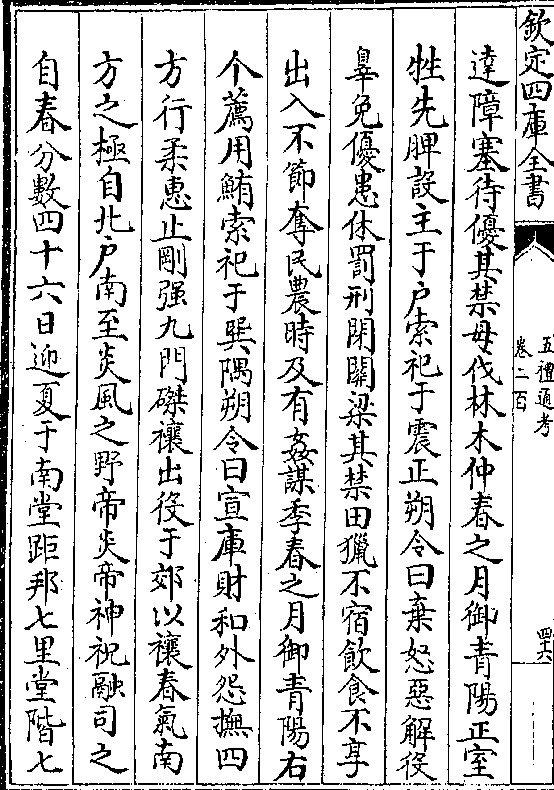 欽定四庫全書
五禮通考
卷二百
四十六
達障塞待優其禁毋伐林木仲春之月御青陽正室
牲先脾設主于户索祀于震正朔令曰棄怒惡解役
辠免優患休罰刑閉關梁其禁田獵不宿飲食不享
出入不節奪民農時及有姦謀季春之月御青陽右
个薦用鮪索祀于巽隅朔令曰宣庫財和外怨撫四
方行柔惠止剛强九門磔禳出役于郊以禳春氣南
方之極自北户南至炎風之野帝炎帝神祝融司之
自春分數四十六日迎夏于南堂距邦七里堂階七